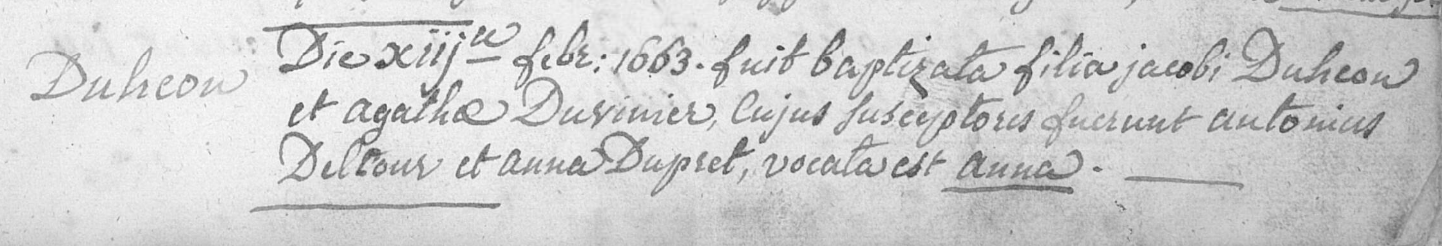 Duheou
Die xiij^a febr: 1663. fuit baptizata filia jacobi Duheou
et agathæ Duvinier, Cujus susceptores fuerunt antonius
Deltour et anna Dupret, vocata est anna.